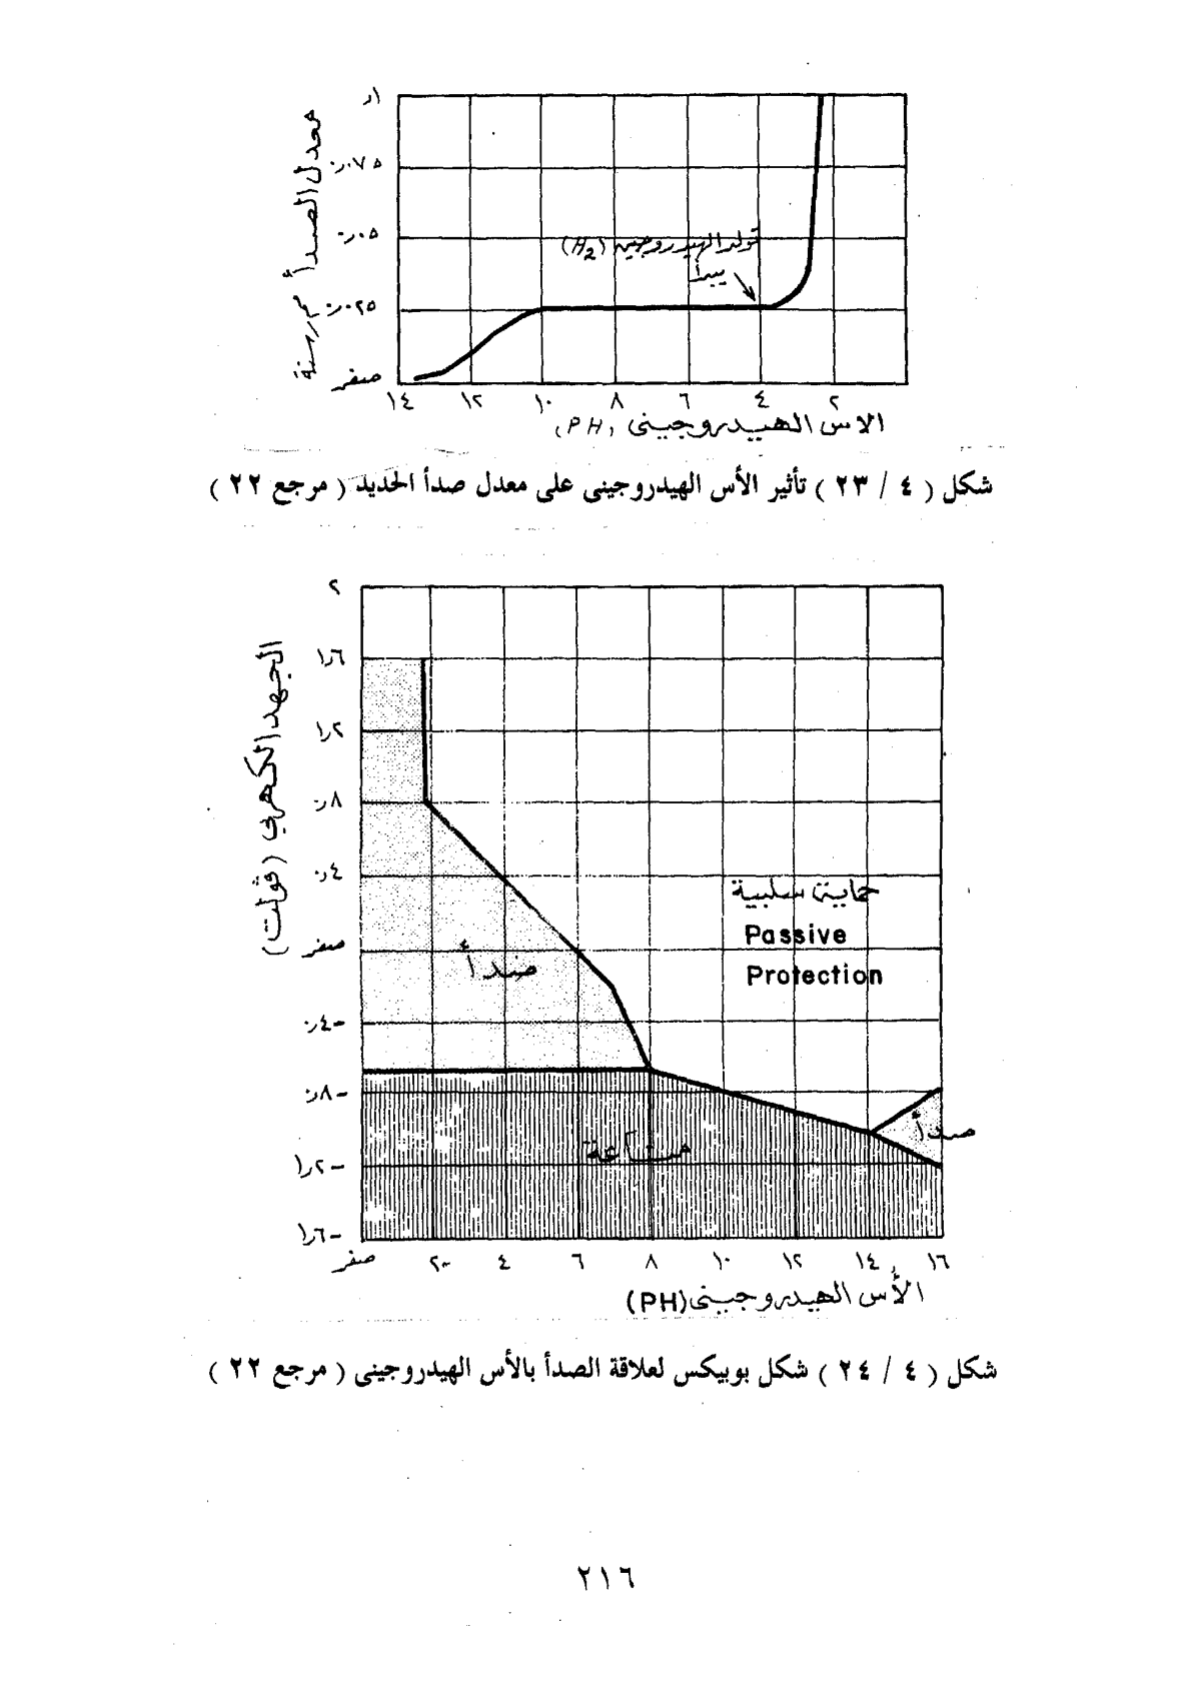 معدل الصدأ مم/سنة
٫١
٫٠٧٥
٫٠٥
٫٠٢٥
صفر
تولد الهيدروجين (H2)
يبدأ
١٤ ١٢ ١٠ ٨ ٦ ٤ ٢
الاس الهيدروجينى (PH)
شكل ( ٤ / ٢٣ ) تأثير الأس الهيدروجينى على معدل صدأ الحديد ( مرجع ٢٢ )
الجهد الكهربي (ڤولت)
٢
١٫٦
١٫٢
٫٨
٫٤
صفر
٫٤-
٫٨-
١٫٢-
١٫٦-
حماية سلبية
Passive
Protection
صدأ
صدأ
مناعة
صفر ٢ ٤ ٦ ٨ ١٠ ١٢ ١٤ ١٦
الأس الهيدروجينى (PH)
شكل ( ٤ / ٢٤ ) شكل بوبيكس لعلاقة الصدأ بالأس الهيدروجينى ( مرجع ٢٢ )
٢١٦